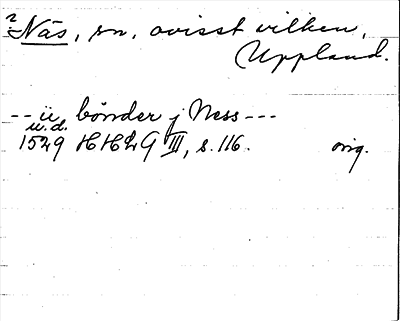 ? Näs, sn, ovisst vilken,
Uppland.
-- ii bönder j Ness ---
u.d.
1529 HH2G III, s. 116. orig.